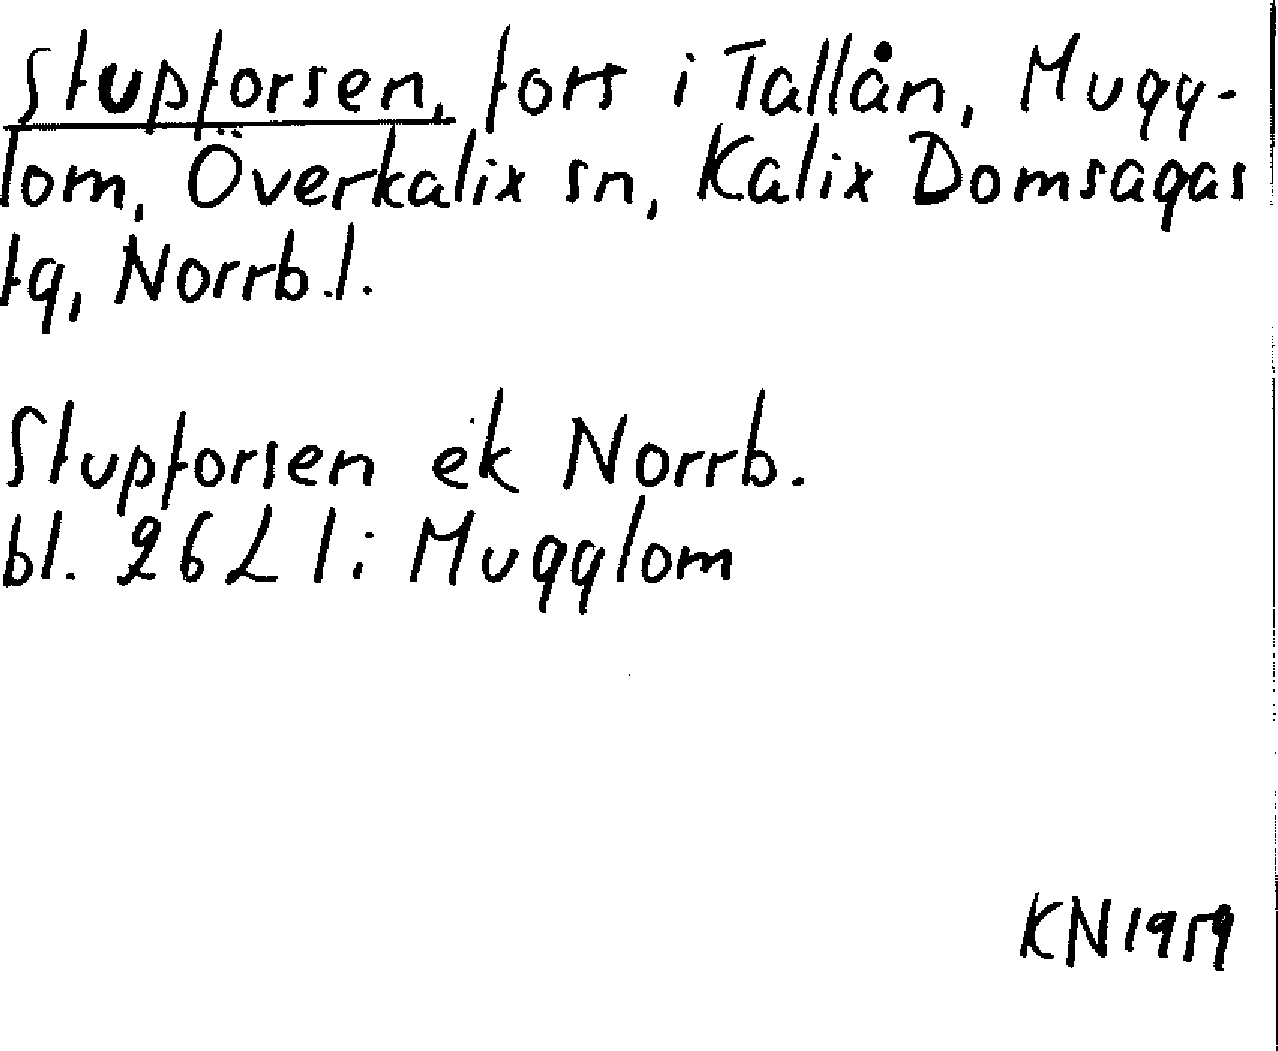 Stupforsen, fors i Tallån, Mugg-
lom, Överkalix sn, Kalix Domsagas
tg, Norrb.l.
Stupforsen ek Norrb.
bl. 26 L l: Mugglom
KN 1959